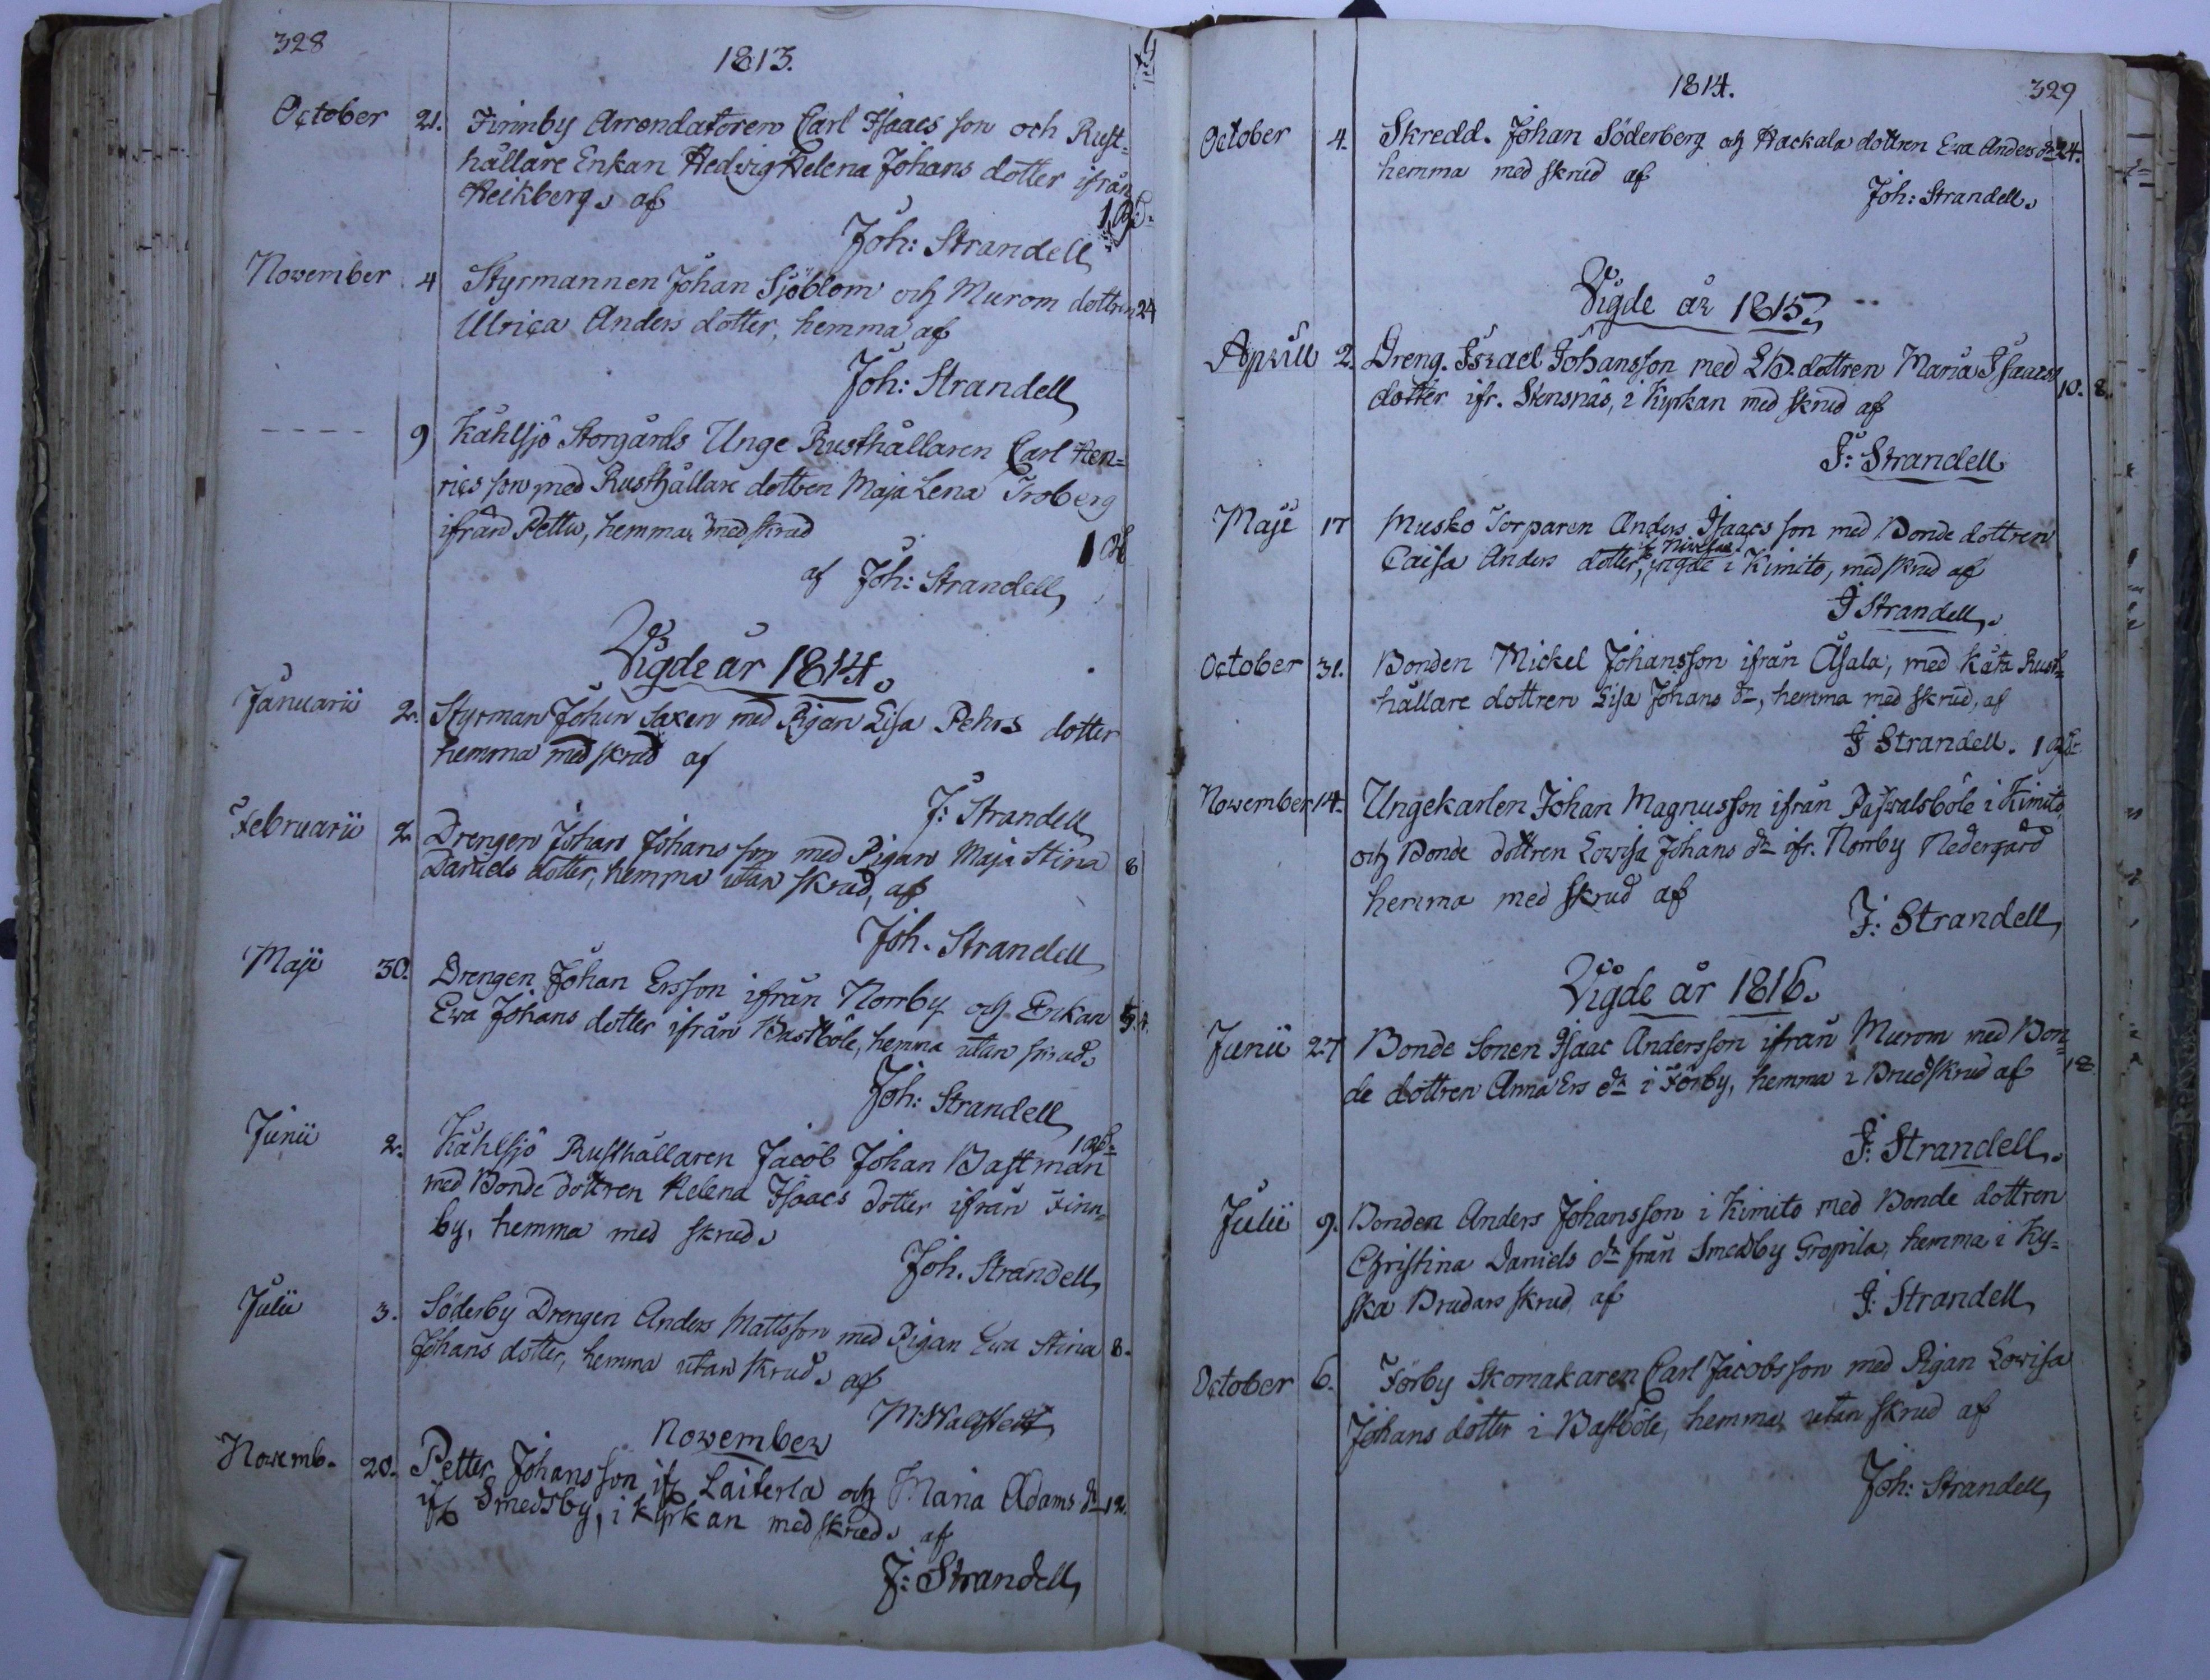 328
1813.
October 21. Finnby Arrendatoren Carl Isaacs son och Rust=
hållare Enkan Hedvig Helena Johans dotter ifrån
Reikberg, af
Joh: Strandell
November 4 Styrmannen Johan Sjöblom och Murom dottren 24
Ulrica Anders dotter, hemma af
Joh: Strandell
---- 9 Kåhlsjö Storgårds Unge Rusthållaren Carl Hen=
rics son med Rusthållare dottren Maja Lena Troberg
ifrån Pettu, hemma, med skrud
af Joh: Strandell,
Vigde år 1814.
Januarii 2. Styrman Johan Saxen med Pigan Lisa Pehrs dotter
hemma med skrud af
J: Strandell
Februarii 2 Drengen Johan Johans son med Pigan Maja Stina 8
Daniels dotter, hemma utan skrud, af
Joh. Strandell
Maji 30. Drengen Johan Ersson ifrån Norrby och Enkan
Ewa Johans dotter ifrån Bastböle, hemma utan skrud,
Joh: Strandell
Junii 2. Kåhlsjö Rusthållaren Jacob Johan Bastman
med Bonde dottren Helena Isaacs dotter ifrån Finn=
by, hemma med skrud,
Joh. Strandell
Julii 3. Söderby Drengen Anders Mattsson med Pigan Ewa Stina 8.
Johans dotter, hemma utan skrud, af
November
Novemb. 20. Petter Johansson ifr Laiterla och Maria Adams dr 12.
ifr Smedsby, i kyrkan med skrud, af
J: Strandell
1814.
329
October 4. Skredd. Johan Söderberg och Hackala dottren Ewa Anders dr 24.
hemma med skrud af
Joh: Strandell.
Vigde år 1815.
Aprill 2. Dreng. Israel Johansson med dottren Maria Isaacs 10. 8.
dotter ifr. Stensnäs, i Kyrkan med skrud af
J: Strandell
Maji 17 Musko Torparen Anders Isaacs son med Bonde dottren
Caisa Anders dotter, vigde i Kimito, med skrud af
J Strandell.
October 31. Bonden Mickel Johansson ifrån Åsala, med Kåta Rust=
hållare dottren Lisa Johans dr, hemma med skrud, af
J Strandell.
November 14. Ungekarlen Johan Magnusson ifrån Påsvalsböle i Kimito,
och Bonde dottren Lovisa Johans dr ifr. Norrby Nedergård
hemma med skrud af
J: Strandell
Vigde år 1816.
Junii 27 Bonde Sonen Isaac Andersson ifrån Murom med Bon=
de dottren Anna Ers dr i Förby, hemma i Brudskrud af 18
J: Strandell.
Julii 9. Bonden Anders Johansson i Kimito med Bonde dottren
Christina Daniels dr från Smedsby Gropila, hemma i Ky=
ska Brudars skrud, af
J: Strandell
October 6. Förby Skomakaren Carl Jacobsson med Pigan Lovisa
Johans dotter i Bastböle, hemma, utan skrud af
Joh: Strandell,